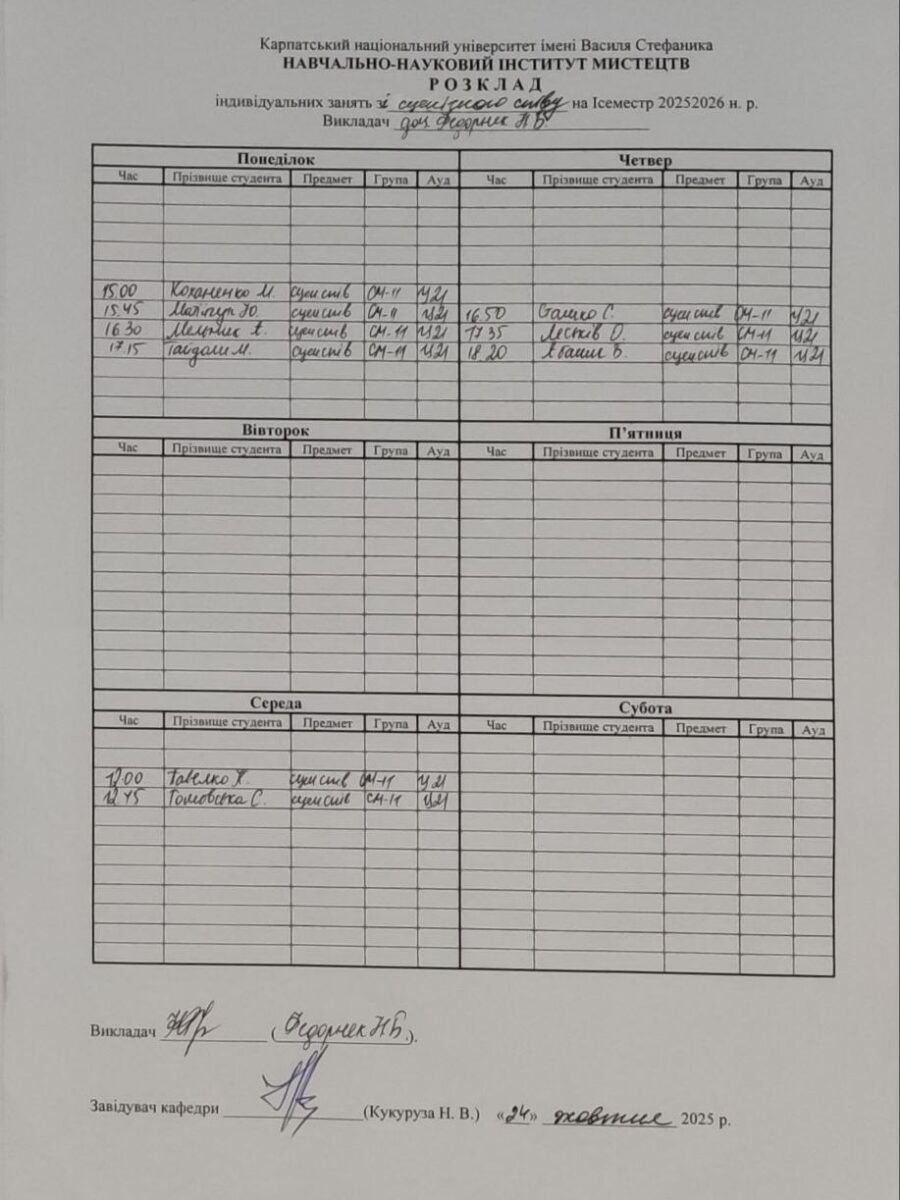 Карпатський національний університет імені Василя Стефаника
НАВЧАЛЬНО-НАУКОВИЙ ІНСТИТУТ МИСТЕЦТВ
Р О З К Л А Д
індивідуальних занять зі сценічного співу на Ісеместр 20252026 н. р.
Викладач доц. Федорняк Н Б.
Понеділок
Час Прізвище студента Предмет Група Ауд
15.00 Коханенко М. сцен спів СМ-11 Ц21
15.45 Ю. сцен спів СМ-11 Ц21
16 30 Мельник А. сцен спів СМ-11 Ц21
17.15 М. сцен спів СМ-11 Ц21
Четвер
Час Прізвище студента Предмет Група Ауд
16 50 С. сцен спів СМ-11 Ц21
17 35 Леськів О. сцен спів СМ-11 Ц21
18.20 В. сцен спів СМ-11 Ц21
Вівторок
Час Прізвище студента Предмет Група Ауд
П’ятниця
Час Прізвище студента Предмет Група Ауд
Середа
Час Прізвище студента Предмет Група Ауд
12.00 Х. сцен спів СМ-11 Ц21
12.45 С. сцен спів СМ-11 Ц21
Субота
Час Прізвище студента Предмет Група Ауд
Викладач (Федорняк Н Б.).
Завідувач кафедри (Кукуруза Н. В.) «24» жовтня 2025 р.